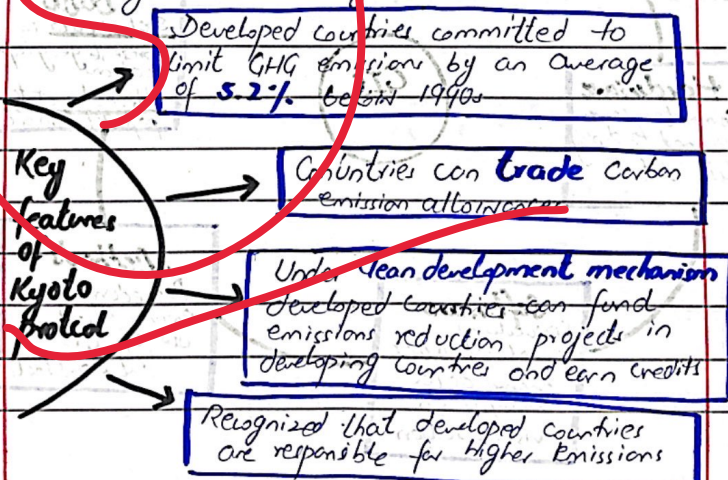 Developed countries committed to
limit GHG emissions by an average
of 5.2% below 1990s
Key
features
of
Kyoto
Protcol
Countries can trade carbon
emission allowances
Under clean development mechanism
developed countries can fund
emissions reduction projects in
developing countries and earn credits
Recognized that developed countries
are responsible for higher Emissions